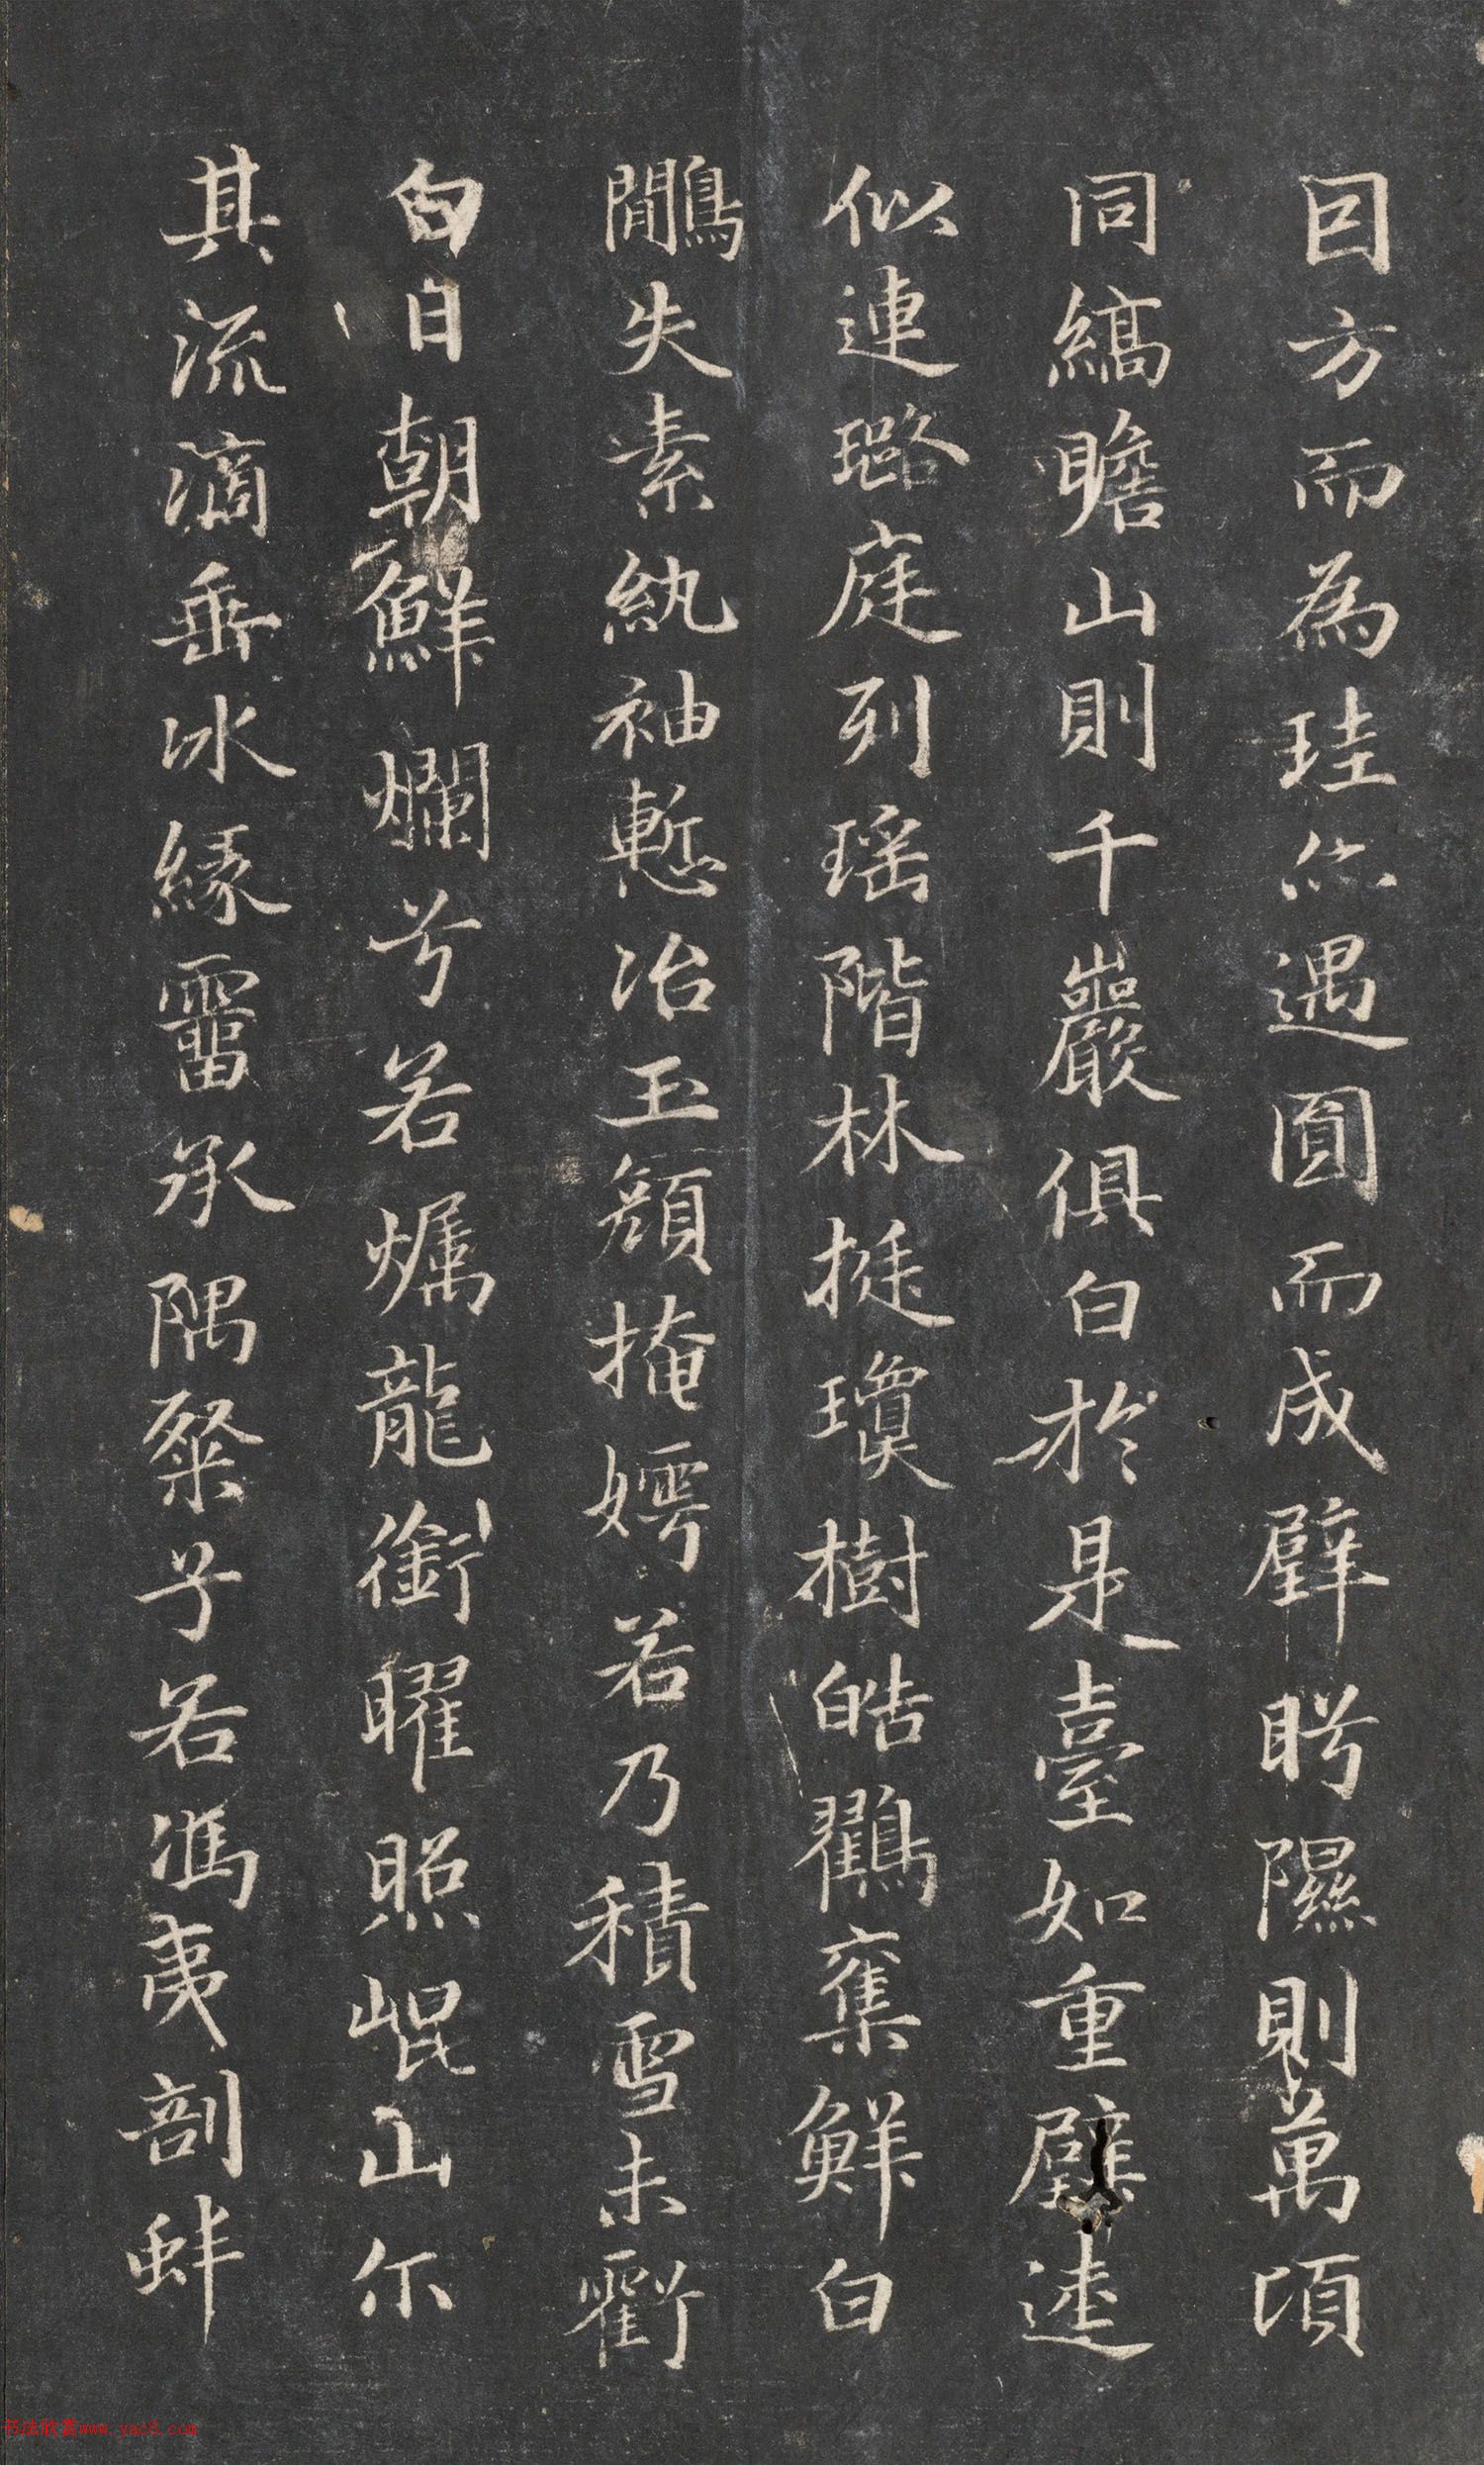 因方而為珪亦遇圓而成璧眄隰則萬頃
同縞瞻山則千巖俱白於是臺如重璧逵
似連璐庭列瑤階林挺瓊樹皓鶴奪鮮白
鷴失素紈袖慙冶玉顏掩嫮若乃積雪未虧
白日朝鮮爛兮若爥龍銜曜照崐山尒
其流滴垂冰緣霤承隅粲兮若馮夷剖蚌
书法欣赏www.yac8.com